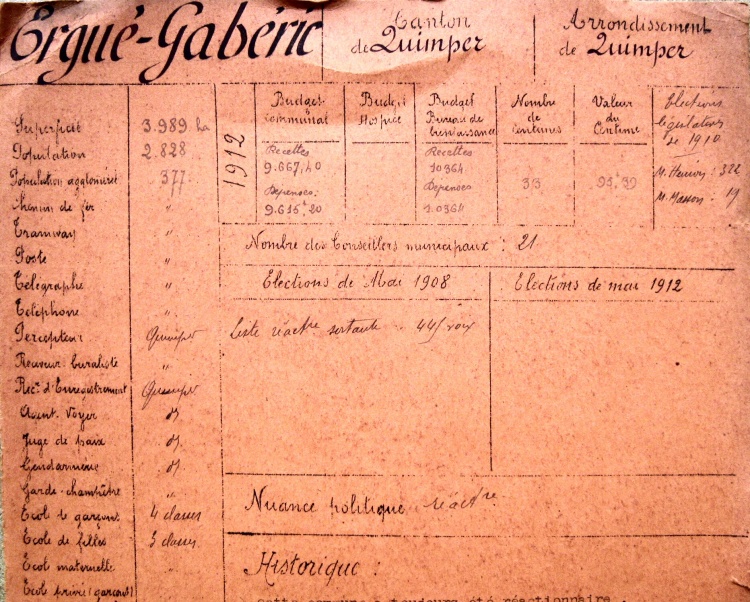 Ergué-Gabéric
Canton
de Quimper
Arrondissement
de Quimper
Superficie 3.989 ha
Population 2.828
Population agglomérée 377
Chemin de fer "
Tramway "
Poste "
Télégraphe "
Téléphone "
Percepteur Quimper
Receveur buraliste "
Recr d'Enregistrement Quimper
Agent Voyer d
Juge de paix d
Gendarmerie d
Garde-champêtre "
Ecole de garçons 4 classes
Ecole de filles 5 classes
Ecole maternelle "
Ecole privée (garçons)
1912
Budget
communal
Recettes
9.667,40
Dépenses:
9.615,20
Budget
Hospice
Budget
Bureau de
bienfaisance
Recettes
10364
Dépenses
10364
Nombre
de
Centimes
313
Valeur
du
Centime
95,39
Elections
législatives
de 1910
M. 322
M. Masson: 19
Nombre des Conseillers municipaux : 21
Elections de Mai 1908
Liste réactre sortante : 441 voix
Elections de mai 1912
Nuance politique réactre
Historique :
Cette commune a toujours été réactionnaire.